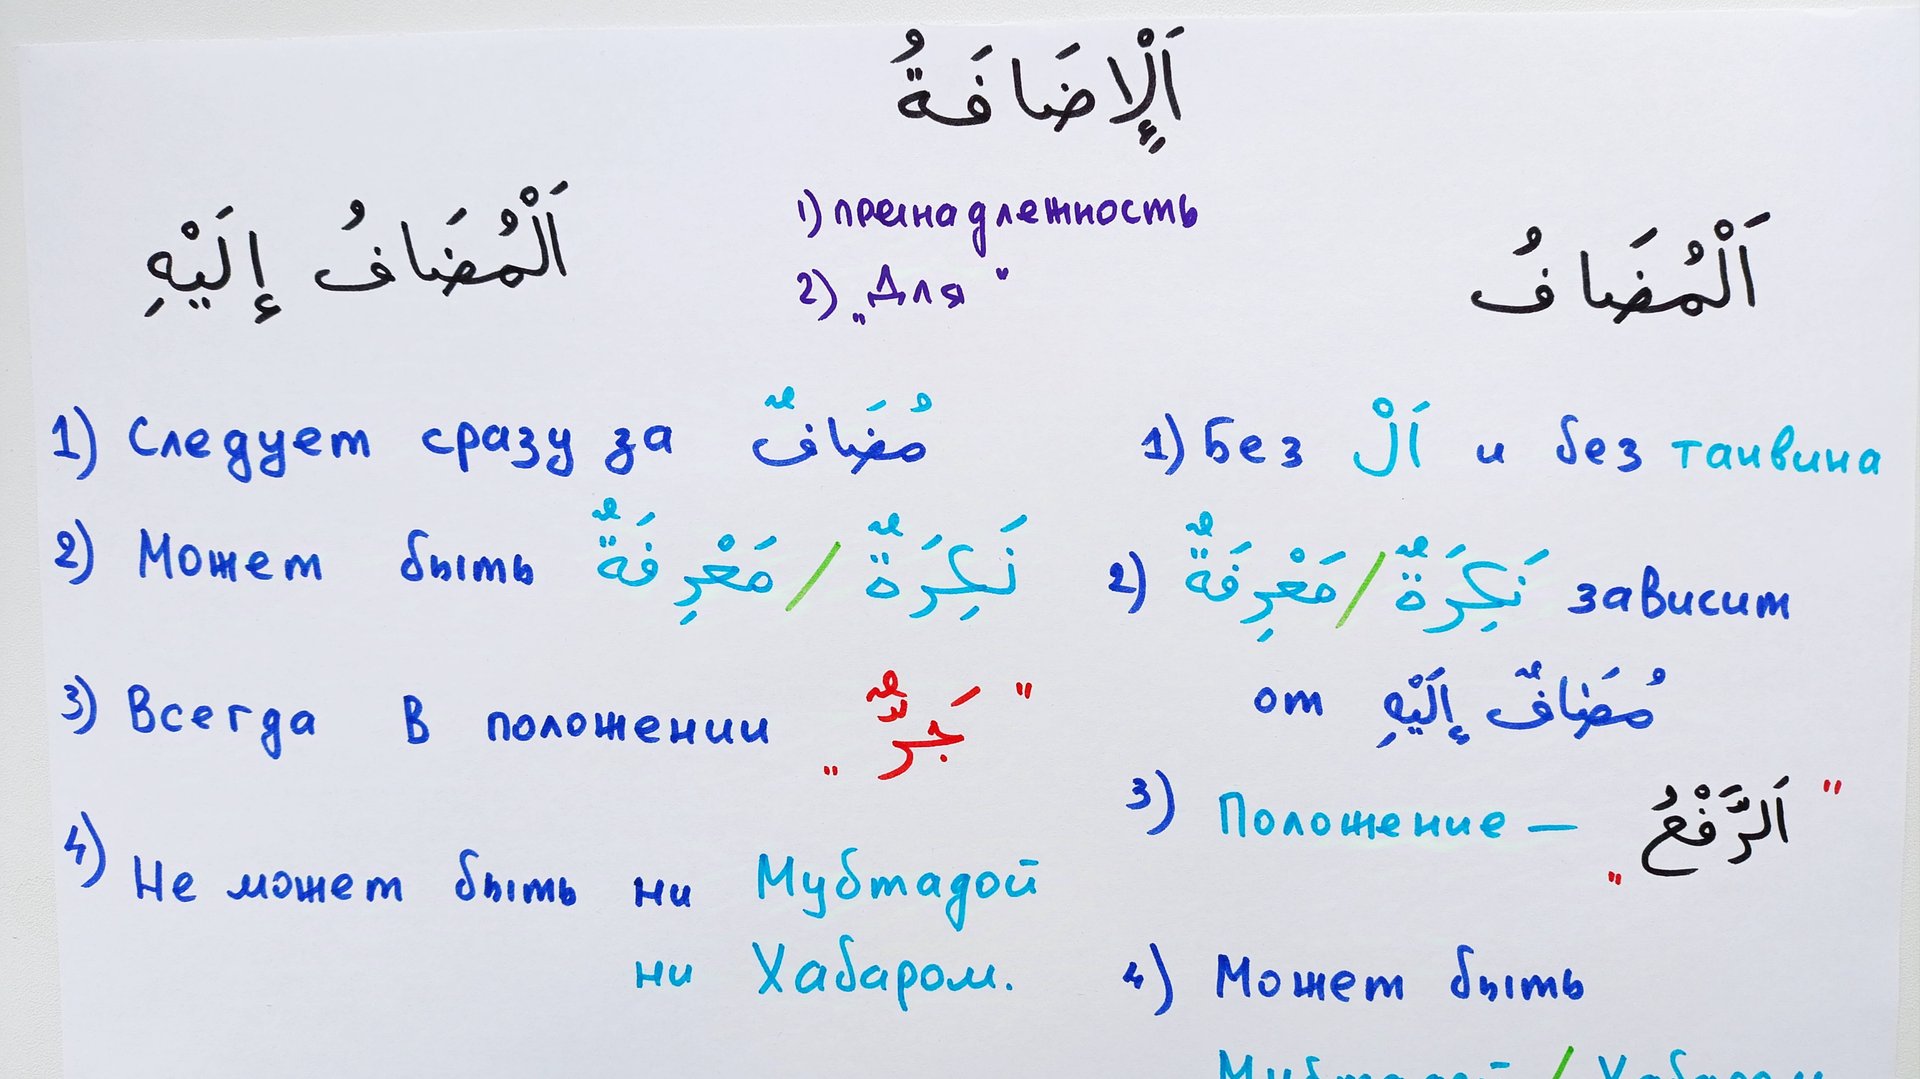 اَلْإِضَافَةُ
1) пренадлежность
2) „Для"
اَلْمُضَافُ إِلَيْهِ
1) Следует сразу за مُضَافٌ
2) Может быть نَكِرَةٌ / مَعْرِفَةٌ
3) Всегда в положении „جَرٌّ"
4) Не может быть ни Мубтадой
ни Хабаром.
اَلْمُضَافُ
1) Без اَلْ и без танвина
2) نَكِرَةٌ / مَعْرِفَةٌ зависит
от مُضَافٌ إِلَيْهِ
3) Положение — „اَلرَّفْعُ"
4) Может быть
Мубтадой / Хабаром